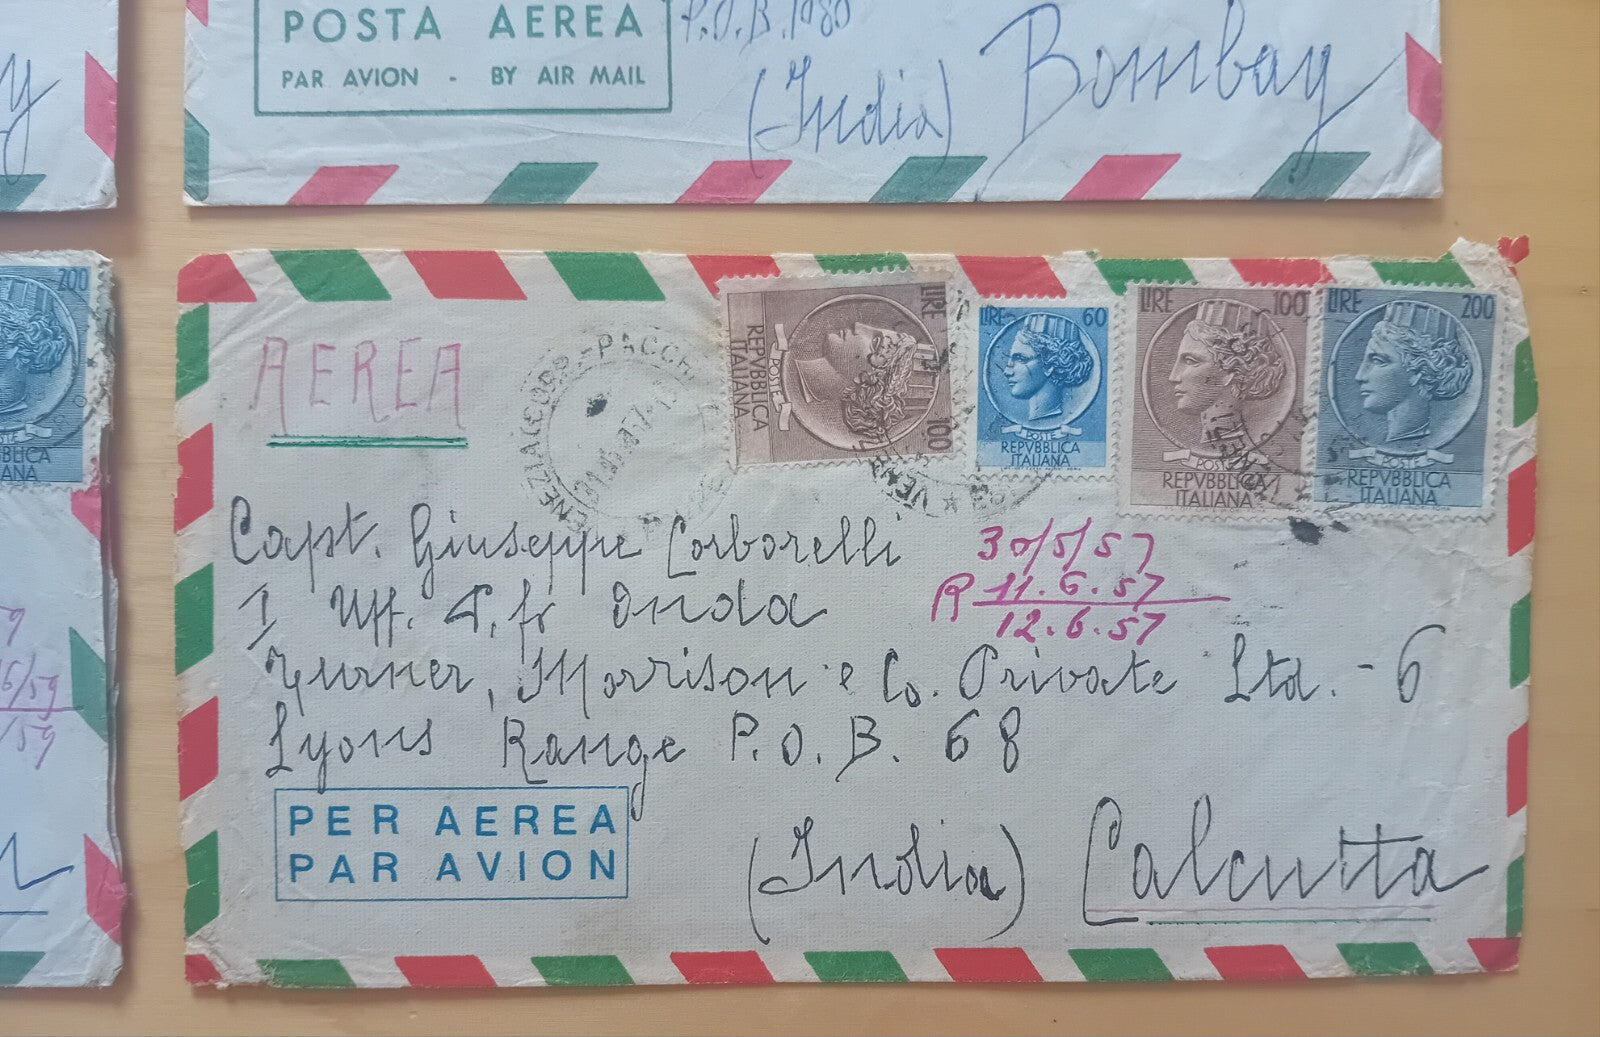 POSTA AEREA
PAR AVION - BY AIR MAIL
P.O.B. 1980
(India) Bombay
200
AEREA
LIRE 100
POSTE
REPVBBLICA
ITALIANA
LIRE 60
POSTE
REPVBBLICA
ITALIANA
LIRE 100
POSTE
REPVBBLICA
ITALIANA
LIRE 200
POSTE
REPVBBLICA
ITALIANA
Capt. Giuseppe Corborelli
30/5/57
R 11.6.57
12.6.57
I Uff. P.fo Onda
Turner, Morrison e Co. Private Ltd. - 6
Lyons Range P.O.B. 68
PER AEREA
PAR AVION
(India) Calcutta